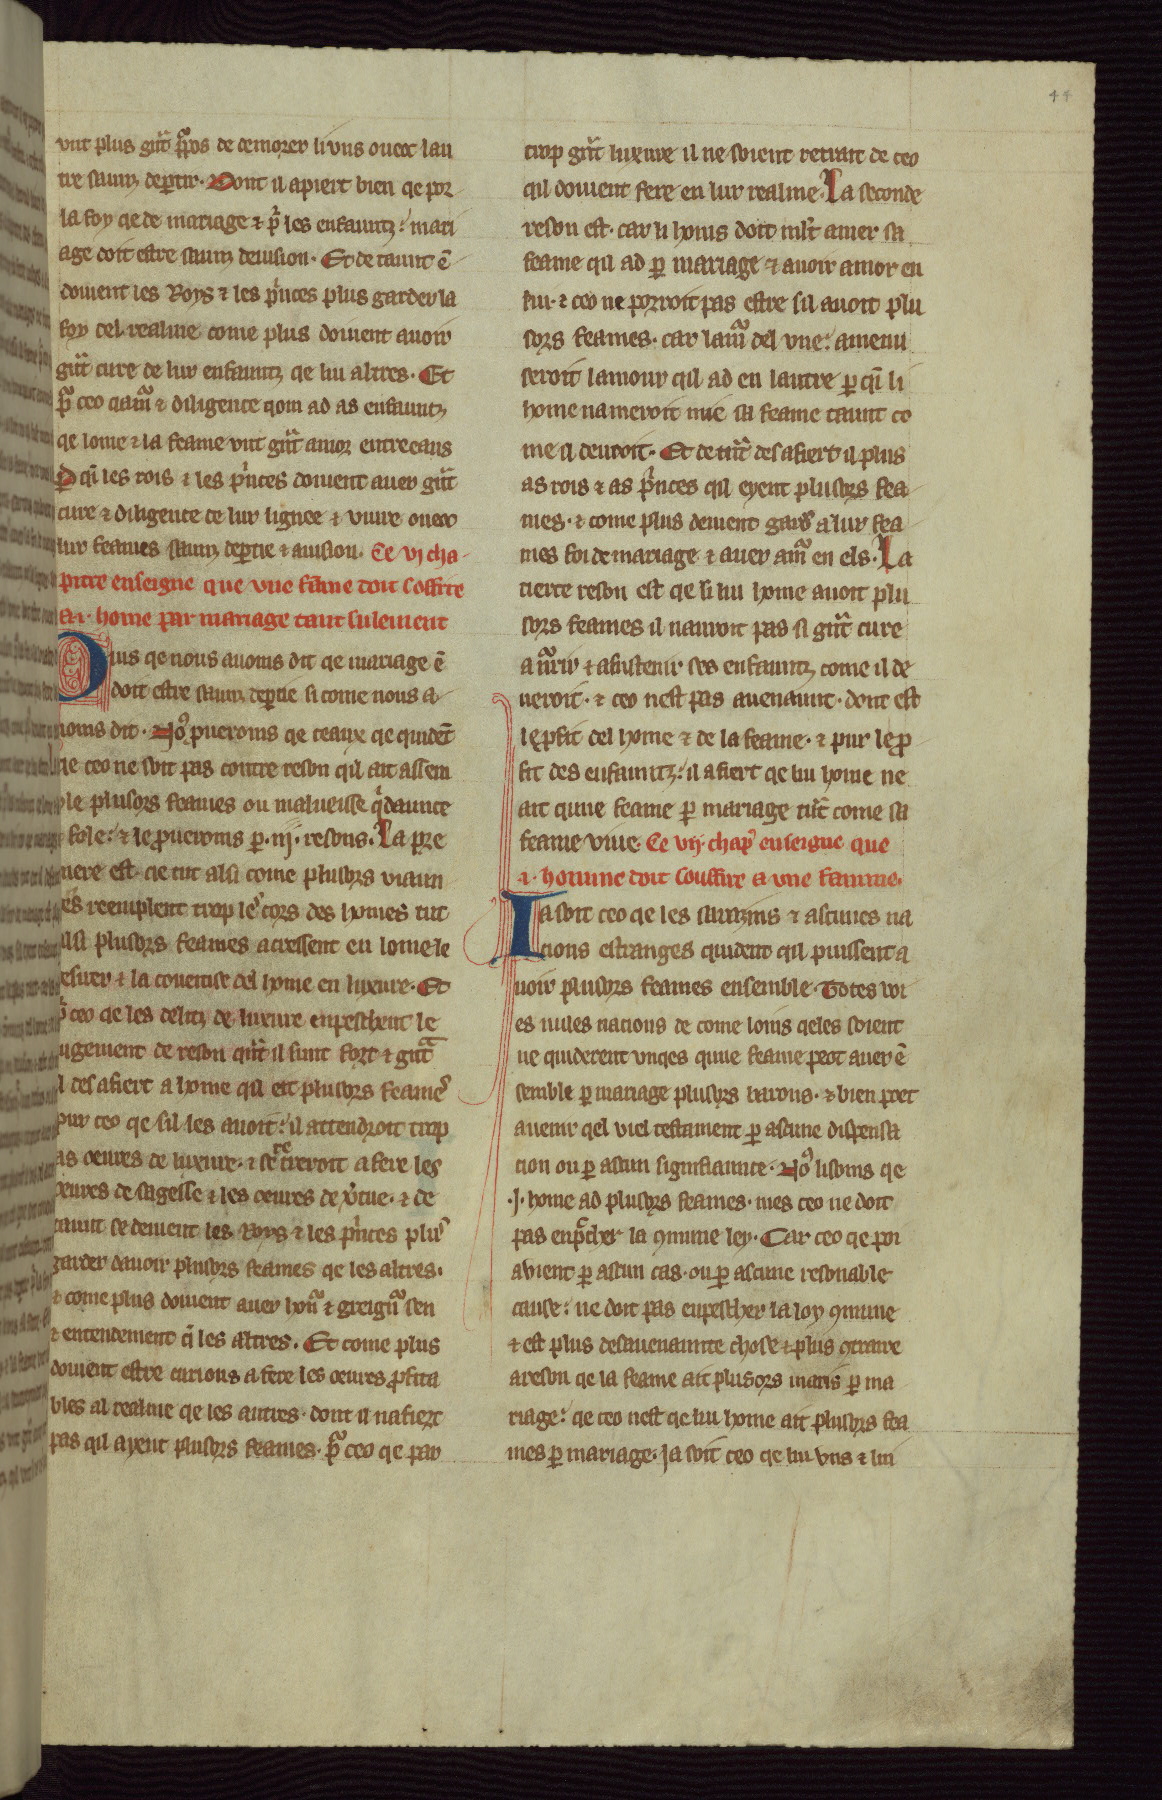 44
vnt plus gͬnt ꝓpos de demorer li vns ouec lau
tre saunz deꝑtir. Dont il apiert bien qe por
la foy qe de mariage ⁊ pͬ les enfauntz: mari
age doit estre saunz deuision. Et de taunt ē
doiuent les Roys ⁊ les pͥnces plus garder la
foy del realme come plus doiuent auoir
gͬnt cure de lur enfauntz qe lui altres. Et
pͬ ceo qamͬ ⁊ diligence qom ad as enfauntz
qe lome ⁊ la feame vnt gͬnt amor entre eaus
Ꝑ qͥ les rois ⁊ les pͥnces doiuent auer gͬnt
cure ⁊ diligence de lur lignee ⁊ viure ouec
lur feames saunz deꝑtie ⁊ auision. Ce vj cha-
pitre enseigne que vne fame doit soffire
a .i. home par mariage tant sulement
Puis qe nous auoms dit qe mariage ē
doit estre saunz deꝑtie si come nous a-
uoms dit. Noꝰ pueroms qe ceaux qe quidēt
qe ceo ne soit pas contre reson qil ait assem
ble plusors feames ou malueisse qͥdaunce
⁊ fole: ⁊ le ꝓueroms ꝑ .iij. resons. La pre
mere est. qe tut alsi come plusors viaun
des reemplent trop les cors des homes tut
alsi plusors feames acressent en lome le
desiuer ⁊ la coueitise del home en luxure. Et
pͬ ceo qe les delitz de luxure enpeschent le
iugement de reson qͬnt il sunt fort ⁊ gͬnt
il des afiert a home qil eit plusors feameˢ
pur ceo qe sil les auoit: il attendroit trop
as oeures de luxure. ⁊ se retreroit a fere les
oeures de sagesse ⁊ les oeures de vͬtue. ⁊ de
taunt se deuient les Roys ⁊ les pͥnces pluˢ
garder dauoir plusors feames qe les altres.
⁊ come plus doiuent auer honͬ ⁊ greignͬ sen
⁊ entendement qͥ les altres. Et come plus
doiuent estre curious a fere les oeures ꝓfita
bles al realme qe les autres. dont il nafiert
pas qil ayent plusors feames. pͬ ceo qe par
trop gͬnt luxure il ne soient retrait de ceo
qil doiuent fere en lur realme. La seconde
reson est. car li homs doit mlͭ amer sa
feame qil ad ꝑ mariage ⁊ auoir amor en
lui. ⁊ ceo ne porroit pas estre sil auoit plu
sors feames. car lamͬ del vne: amenu
seroit lamour qil ad en lautre ꝑ qͥ li
home nameroit mie sa feame taunt co
me il deuroit. Et de tͬnt des afiert il plus
as rois ⁊ as pͥnces qil eyent plusors fea
mes. ⁊ come plus deuient gardͬ a lur fea
mes foi de mariage ⁊ auer amͬ en els. La
tierce reson est qe si lui home auoit plu
sors feames il nauroit pas si gͬnt cure
a nͬrir ⁊ a sustenir ses enfauntz come il de
ueroit. ⁊ ceo nest pas auenaunt. dont est
le ꝓfit del home ⁊ de la feame. ⁊ pur le ꝓ
fit des enfauntz: il afiert qe lui home ne
ait qune feame ꝑ mariage tͬnt come sa
feame viue. Ce vij. chapͥ enseigne que
.i. homme doit souffire a vne femme.
Ia soit ceo qe les sarazins ⁊ ascunes na
cions estranges quident qil puissent a
uoir plusors feames ensemble. Totes voi
es nules nacions de come loins qeles soient
ne quiderent vnqes qune feame peot auer ē
semble ꝑ mariage plusors barons. ⁊ bien poet
auenir qel viel testament ꝑ ascune dispensa
cion ou ꝑ ascun signifiaunce. Noꝰ lisoms qe
.j. home ad plusors feames. mes ceo ne doit
pas enpͬcher la ꝯmune ley. Car ceo qe poi
auient ꝑ ascun cas. ou ꝑ ascune resonable
cause: ne doit pas enpescher la loy ꝯmune
⁊ est plus desauenaunte chose ⁊ plus ꝯtraire
a reson qe la feame ait plusors maris ꝑ ma
riage: qe ceo nest qe lui home ait plusors fea
mes ꝑ mariage. Ja soit ceo qe lui vns ⁊ lui